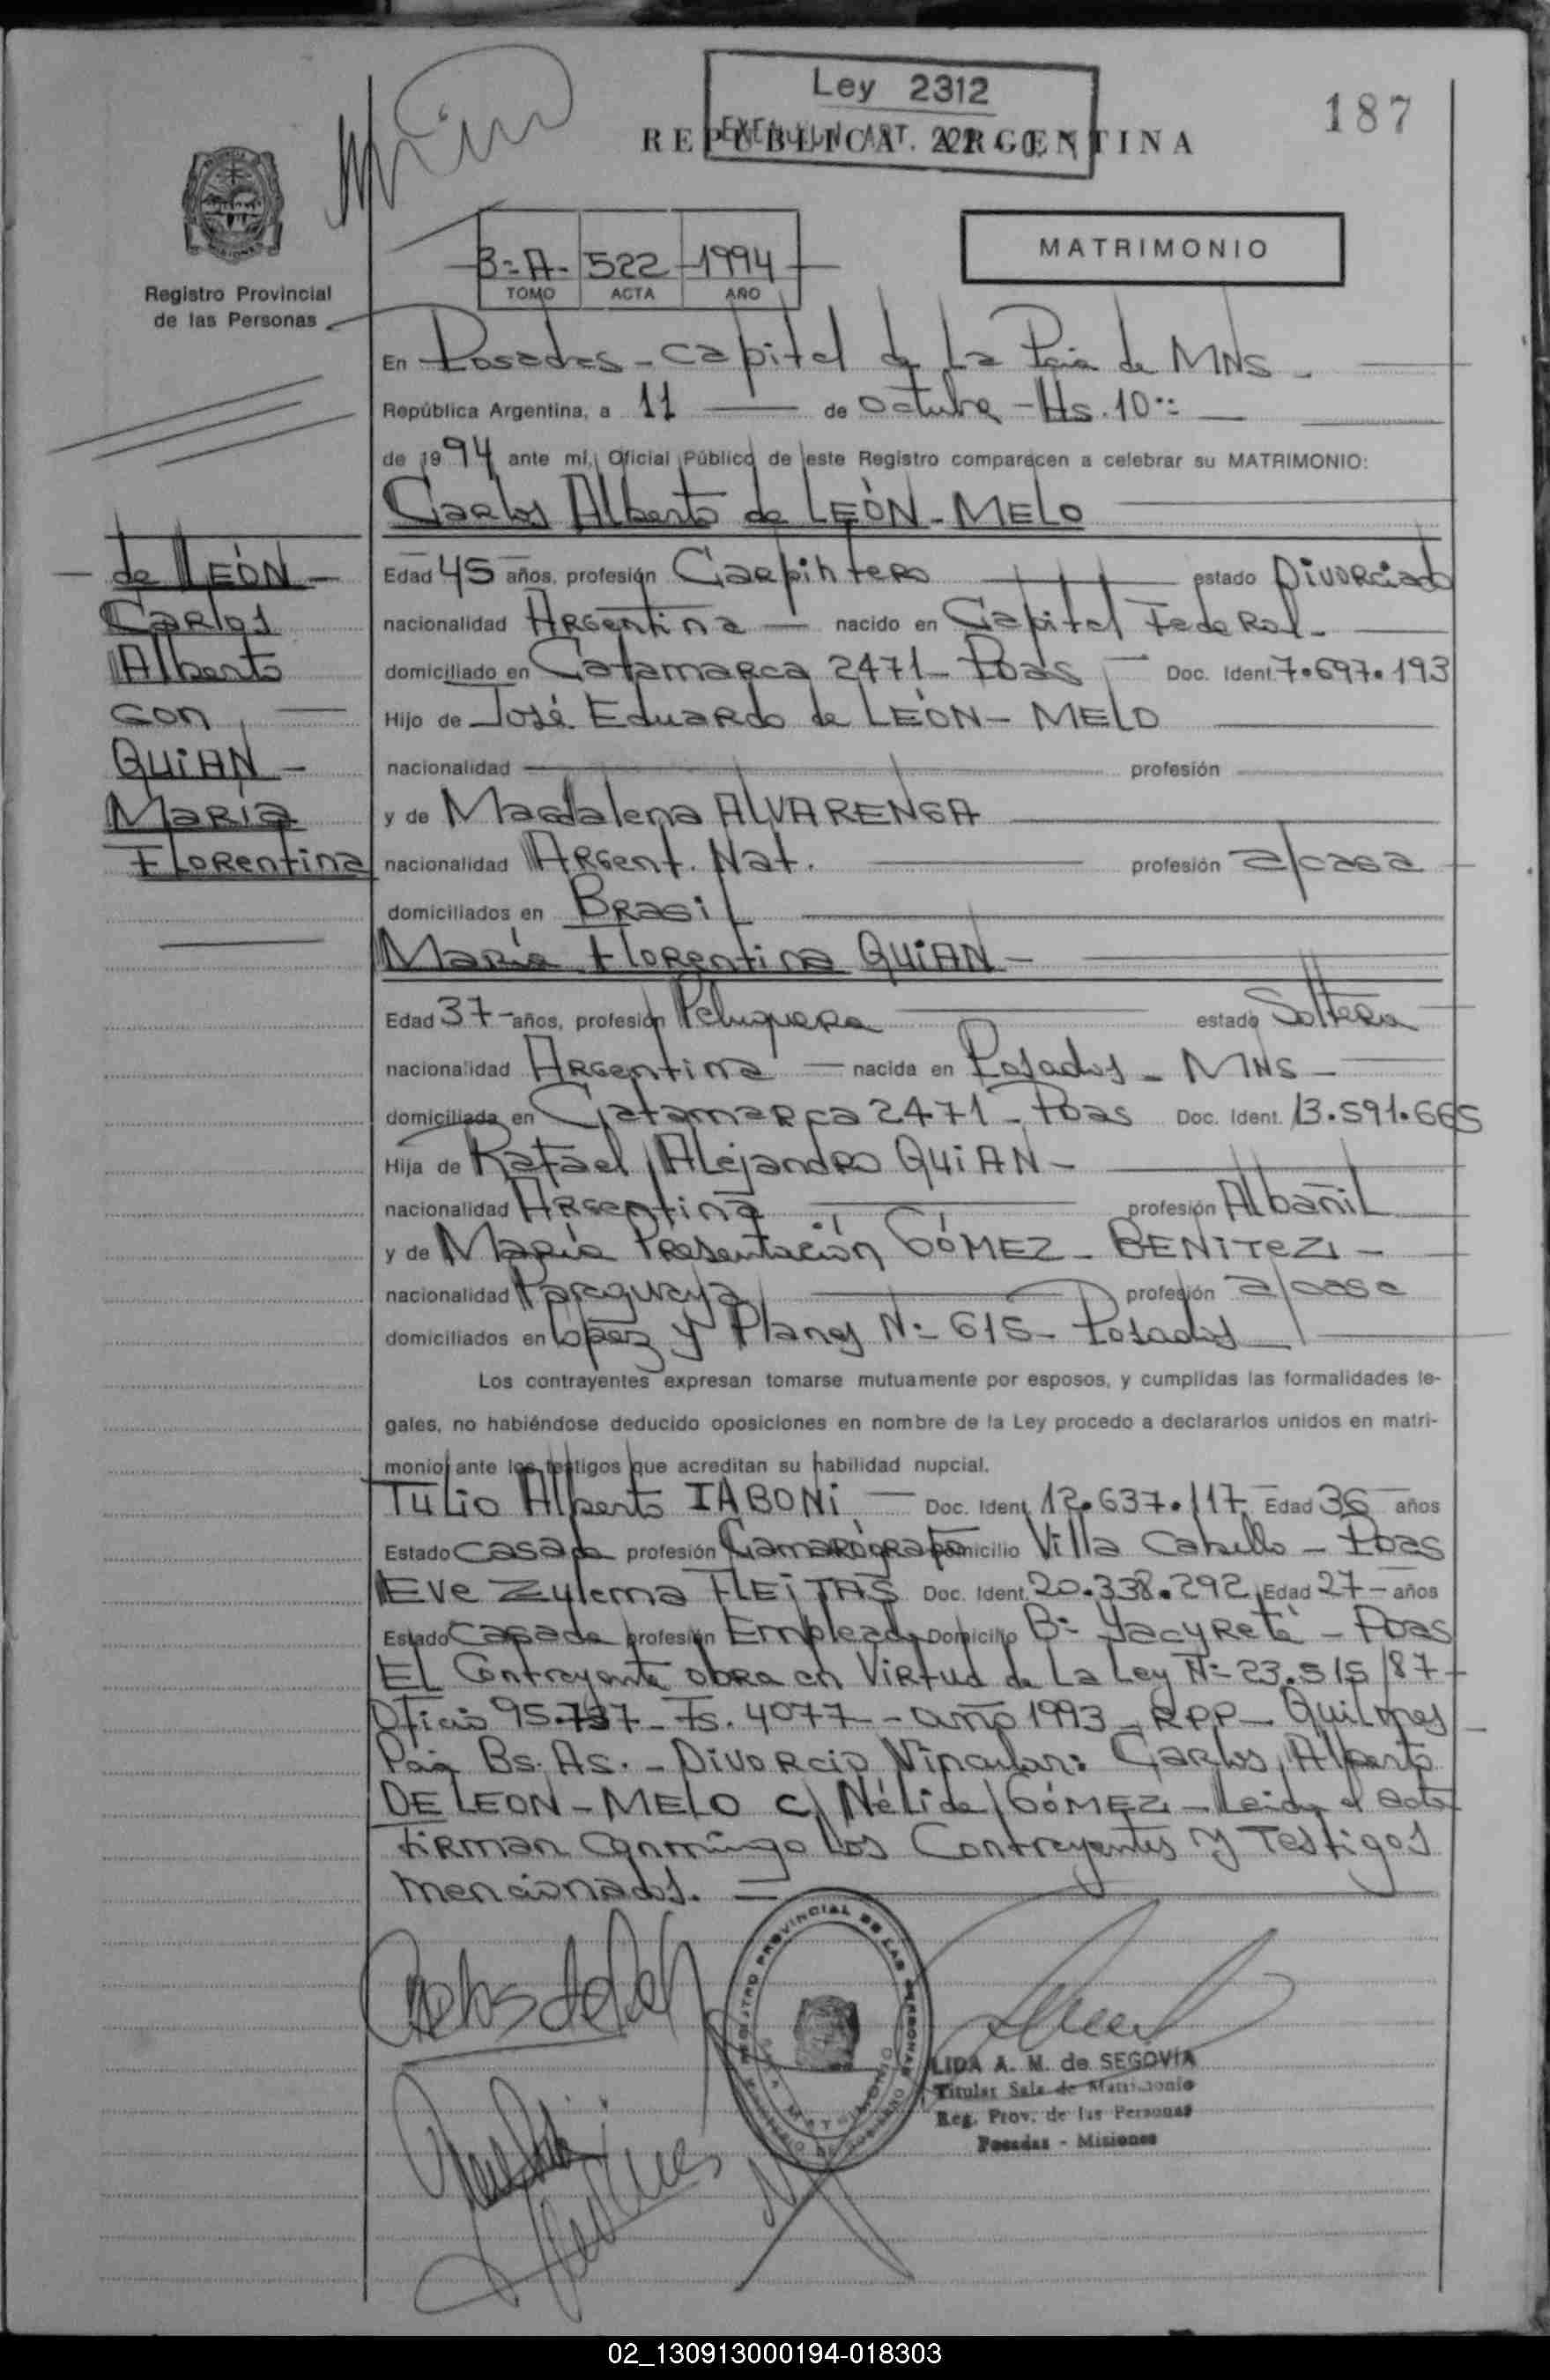 Ley 2312
187
REPUBLICA ARGENTINA
3-A- 522 1994
TOMO ACTA AÑO
MATRIMONIO
Registro Provincial
de las Personas
En Posadas - capital de La Pcia de MNS -
República Argentina, a 11 de octubre - Hs. 10
de 1994 ante mí, Oficial Público de este Registro comparecen a celebrar su MATRIMONIO:
Carlos Alberto de LEÒN - MELO
de LEÒN -
Carlos
Alberto
con
QUIAN -
María
Florentina
Edad 45 años, profesión Carpintero estado Divorciado
nacionalidad Argentina nacido en Capital Federal -
domiciliado en Catamarca 2471 - Pdas Doc. Ident. 7.697.193
Hijo de José Eduardo de LEÒN - MELO
nacionalidad profesión
y de Magdalena ALVARENGA
nacionalidad Argent. Nat. profesión a/casa
domiciliados en Brasil
María Florentina QUIAN -
Edad 37 - años, profesión Peluquera estado Soltera
nacionalidad Argentina nacida en Posadas - MNS -
domiciliada en Catamarca 2471 - Pdas Doc. Ident. 13.591.665
Hija de Rafael Alejandro QUIAN -
nacionalidad Argentina profesión Albañil
y de María Presentación GÓMEZ - BENITEZ -
nacionalidad Paraguaya profesión a/casa
domiciliados en López y Planes Nº 615 - Posadas
Los contrayentes expresan tomarse mutuamente por esposos, y cumplidas las formalidades le-
gales, no habiéndose deducido oposiciones en nombre de la Ley procedo a declararlos unidos en matri-
monio ante los testigos que acreditan su habilidad nupcial.
Tulio Alberto IABONI - Doc. Ident. 12.637.117 Edad 36 años
Estado casado profesión Camarógrafo Domicilio Villa Cabello - Pdas
Eve Zulema FLEITAS Doc. Ident. 20.338.292 Edad 27 - años
Estado Casada profesión Empleada Domicilio Bº Yacyretá - Pdas
El Contrayente obra en Virtud de La Ley Nº 23.515/87 -
Oficio Fs. 4077 - año 1993 - RPP - Quilmes -
Pcia Bs. As. - Divorcio Vincular: Carlos Alberto
DE LEON - MELO c/ Nélida GÓMEZ - Leida el acta
firman conmigo los Contrayentes y Testigos
mencionados.
REGISTRO PROVINCIAL DE LAS PERSONAS
LIDA A. M. de SEGOVIA
Titular Sala de Matrimonio
Reg. Prov. de las Personas
Posadas - Misiones
02_130913000194-018303